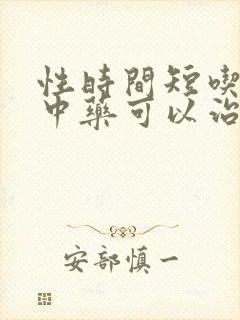 性時間短喫
中藥可以治
安部慎一